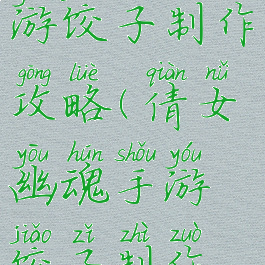 游饺子制作
gōng lüè qiàn nǚ
攻略(倩女
yōu hún shǒu yóu
幽魂手游
jiǎo zǐ zhì zuò
饺子制作